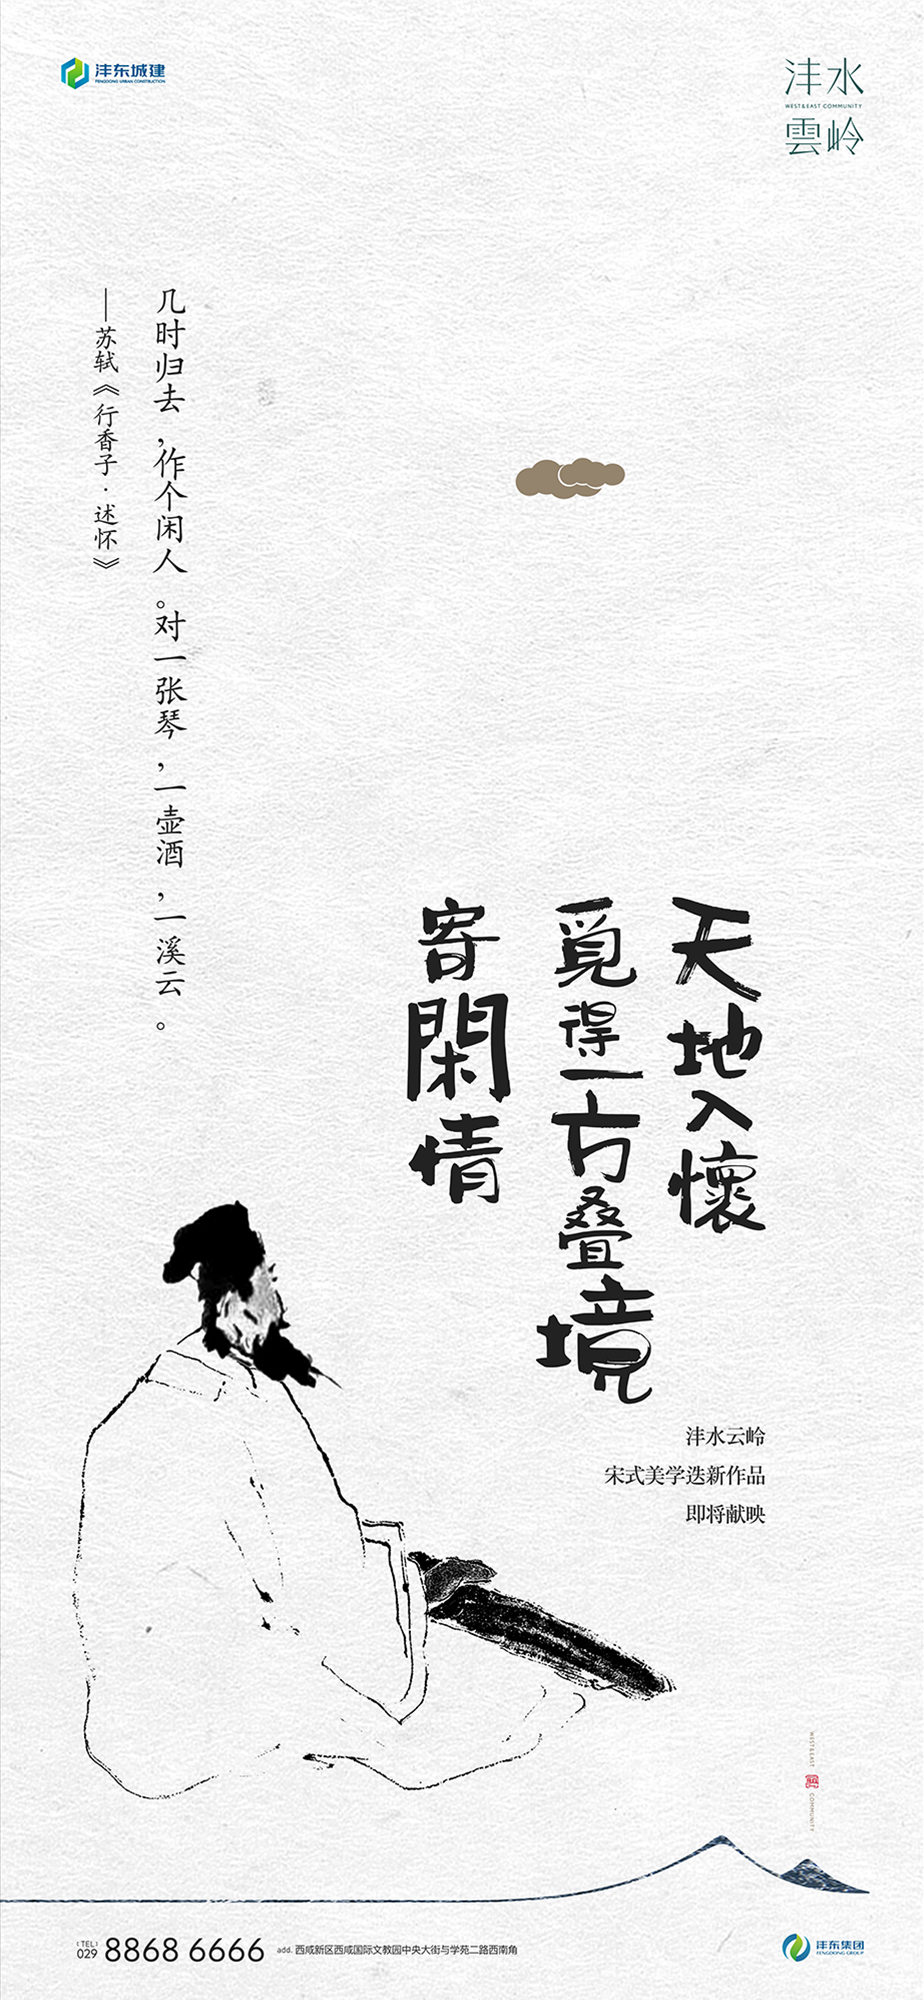 沣东城建
FENGDONG URBAN CONSTRUCTION
沣水
WEST&EAST COMMUNITY
雲岭
几时归去，作个闲人。对一张琴，一壶酒，一溪云。
—苏轼《行香子·述怀》
天地入懷
覓得一方叠境
寄閑情
沣水云岭
宋式美学迭新作品
即将献映
WEST&EAST
COMMUNITY
(TEL)
029 8868 6666
add. 西咸新区西咸国际文教园中央大街与学苑二路西南角
沣东集团
FENGDONG GROUP